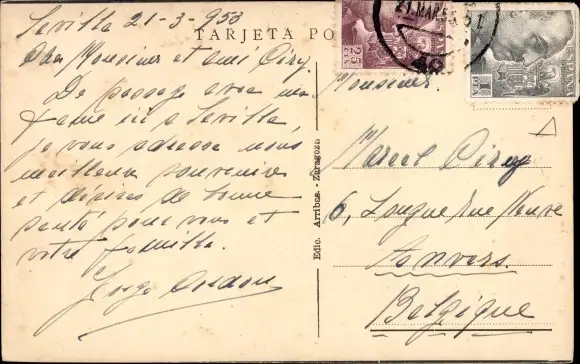 Sevilla 21-3-953
TARJETA PO
Cher Monsieur et ami Ciry.
De passage avec ma
femme ici a Sevilla,
je vous adresse nos
meilleurs souvenirs
et désirs de bonne
santé pour vous et
votre famille.
Jorge
Edic. Arribas. - Zaragoza
21.MAR.5
25
CTS
1
PTA
Monsieur.
Marcel Ciry
6, Longue rue Neuve
Anvers.
Belgique